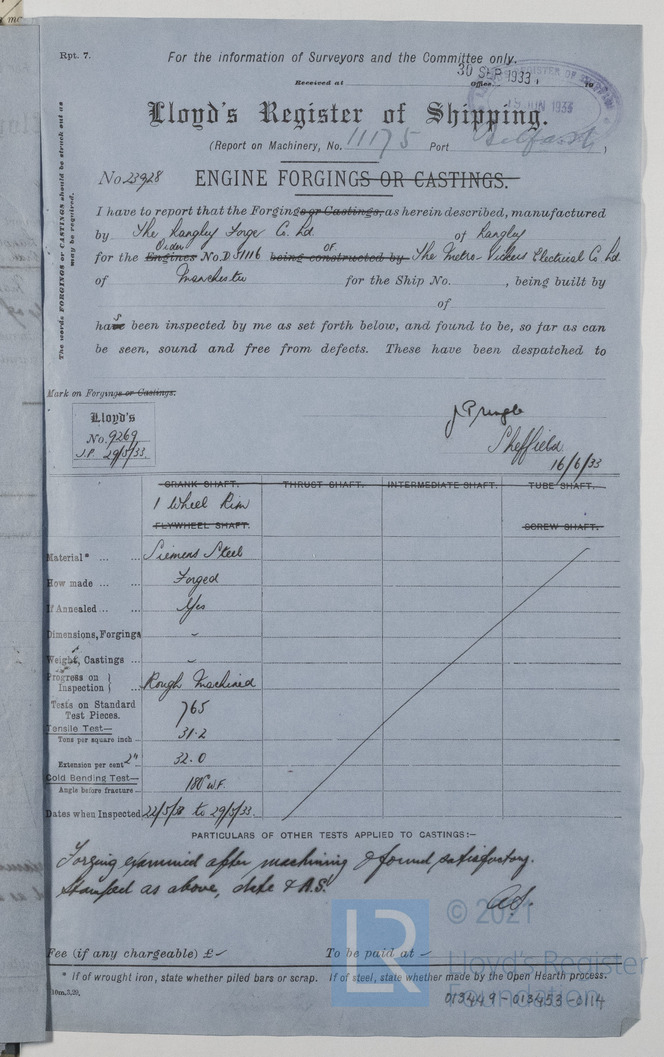 Rpt. 7.
For the information of Surveyors and the Committee only.
Received at
30 SEP 1933
Office
15 JUN 1933
Lloyd's Register of Shipping.
(Report on Machinery, No. 11175 Port Belfast )
No. 23928 ENGINE FORGINGS OR CASTINGS.
The words FORGINGS or CASTINGS should be struck out as may be required.
I have to report that the Forgings or Castings, as herein described, manufactured
by The Langley Forge Co. Ld of Langley
for the Engines Order No. D 51116 being constructed by OF The Metro-Vickers Electrical Co. Ld.
of Manchester for the Ship No. , being built by
of
have s been inspected by me as set forth below, and found to be, so far as can
be seen, sound and free from defects. These have been despatched to
Mark on Forgings or Castings.
Lloyd's
No. 9269
J.P. 29/5/33.
J Pringle
Sheffield.
16/6/33
CRANK SHAFT. THRUST SHAFT. INTERMEDIATE SHAFT. TUBE SHAFT.
1 Wheel Rim
FLYWHEEL SHAFT. SCREW SHAFT.
Material* ... ... Siemens Steel
How made ... ... Forged
If Annealed ... ... Yes
Dimensions, Forgings -
Weight, Castings ... -
Progress on Inspection } ... Rough Machined
Tests on Standard Test Pieces. 765
Tensile Test—
Tons per square inch - 31.2
Extension per cent 2" 32.0
Cold Bending Test—
Angle before fracture - 180° U.F.
Dates when Inspected 22/5/33 to 29/5/33.
PARTICULARS OF OTHER TESTS APPLIED TO CASTINGS:—
Forging examined after machining & found satisfactory.
Stamped as above, date & A.S.
Fee (if any chargeable) £ To be paid at
* If of wrought iron, state whether piled bars or scrap. If of steel, state whether made by the Open Hearth process.
10m.3,29.
013449-013453-0114
LR
© 2021
Lloyd's Register
Foundation